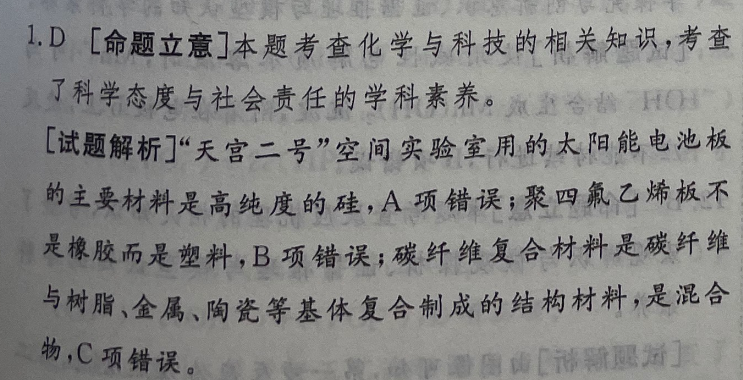 1.D [命题立意]本题考查化学与科技的相关知识,考查
了科学态度与社会责任的学科素养。
[试题解析]“天宫二号”空间实验室用的太阳能电池板
的主要材料是高纯度的硅,A 项错误;聚四氟乙烯板不
是橡胶而是塑料,B 项错误;碳纤维复合材料是碳纤维
与树脂、金属、陶瓷等基体复合制成的结构材料,是混合
物,C 项错误。